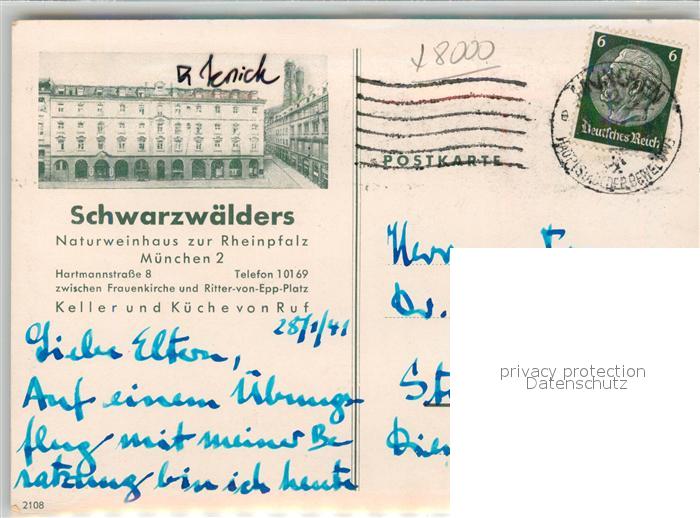 x 8000
6 6
MÜNCHEN
Deutsches Reich
HAUPTSTADT DER BEWEGUNG
POSTKARTE
Schwarzwälders
Naturweinhaus zur Rheinpfalz
München 2
Hartmannstraße 8 Telefon 10169
zwischen Frauenkirche und Ritter-von-Epp-Platz
Keller und Küche von Ruf
28/1/41
Liebe Eltern,
Auf einem Übungs-
flug mit meiner Be-
satzung bin ich heute
2108
Herrn
Dr.
privacy protection
Datenschutz